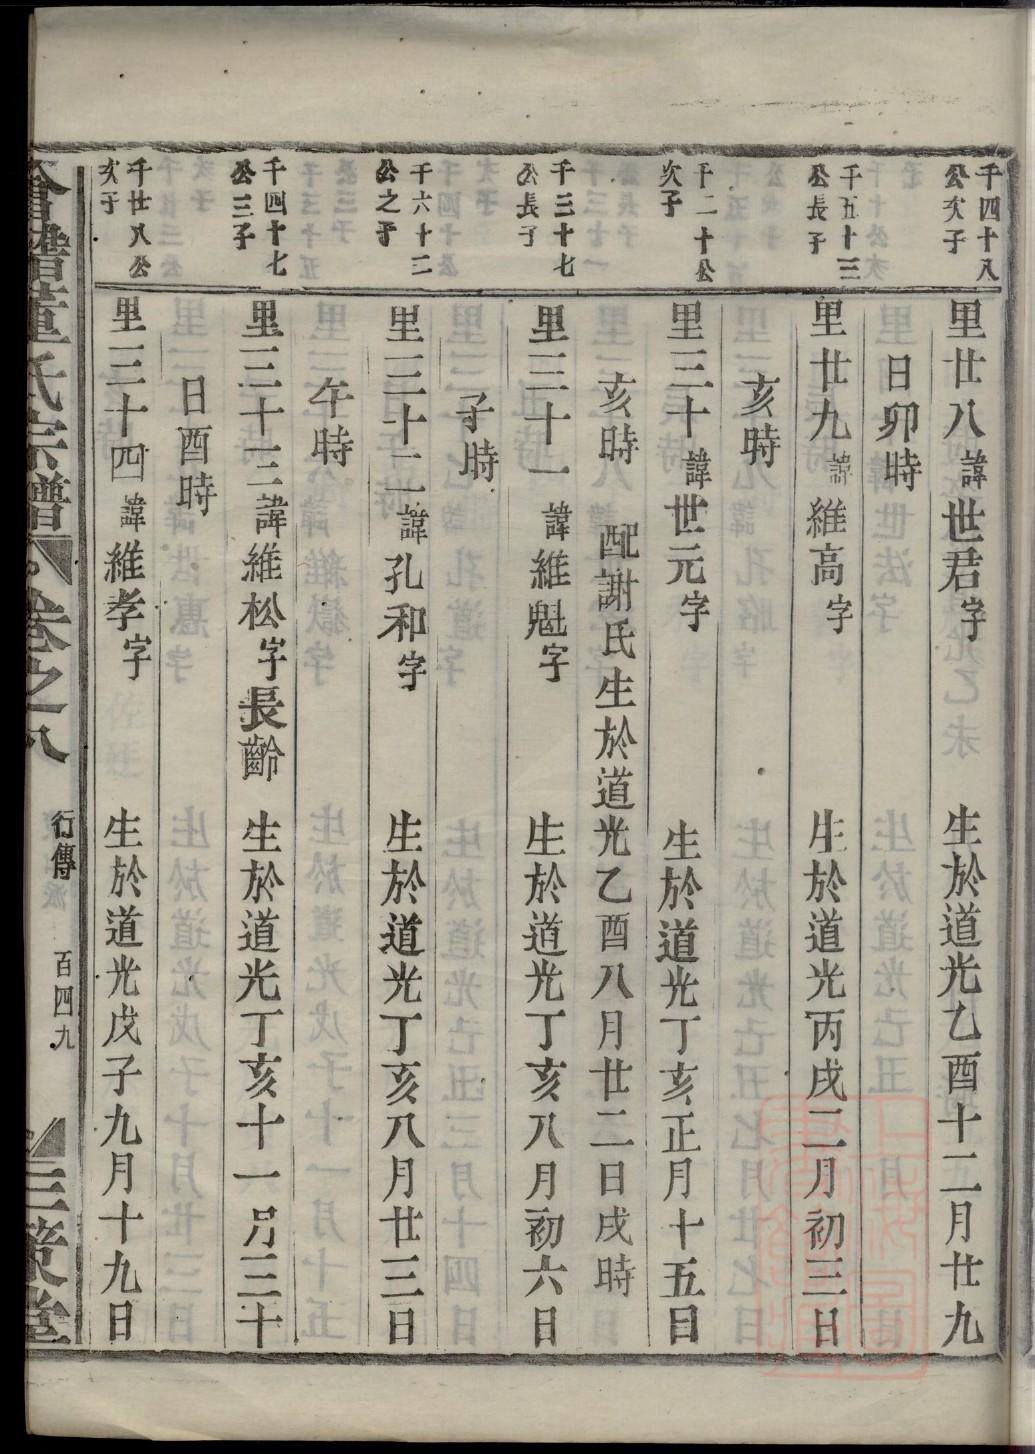 千四十八
公次子
里廿八諱世君字 生於道光乙酉十二月廿九
日卯時
千五十三
公長子
里廿九諱維高字 生於道光丙戌二月初三日
亥時
千二十公
次子
里三十諱世元字 生於道光丁亥正月十五日
亥時 配謝氏生於道光乙酉八月廿二日戌時
千三十七
公長子
里三十一諱維魁字 生於道光丁亥八月初六日
子時
千六十二
公之子
里三十二諱孔和字 生於道光丁亥八月廿三日
午時
千四十七
公三子
里三十三諱維松字長齡 生於道光丁亥十一月三十
日酉時
千廿八公
次子
里三十四諱維孝字 生於道光戊子九月十九日
董氏宗譜 卷之八 行傳 百四九 三策堂